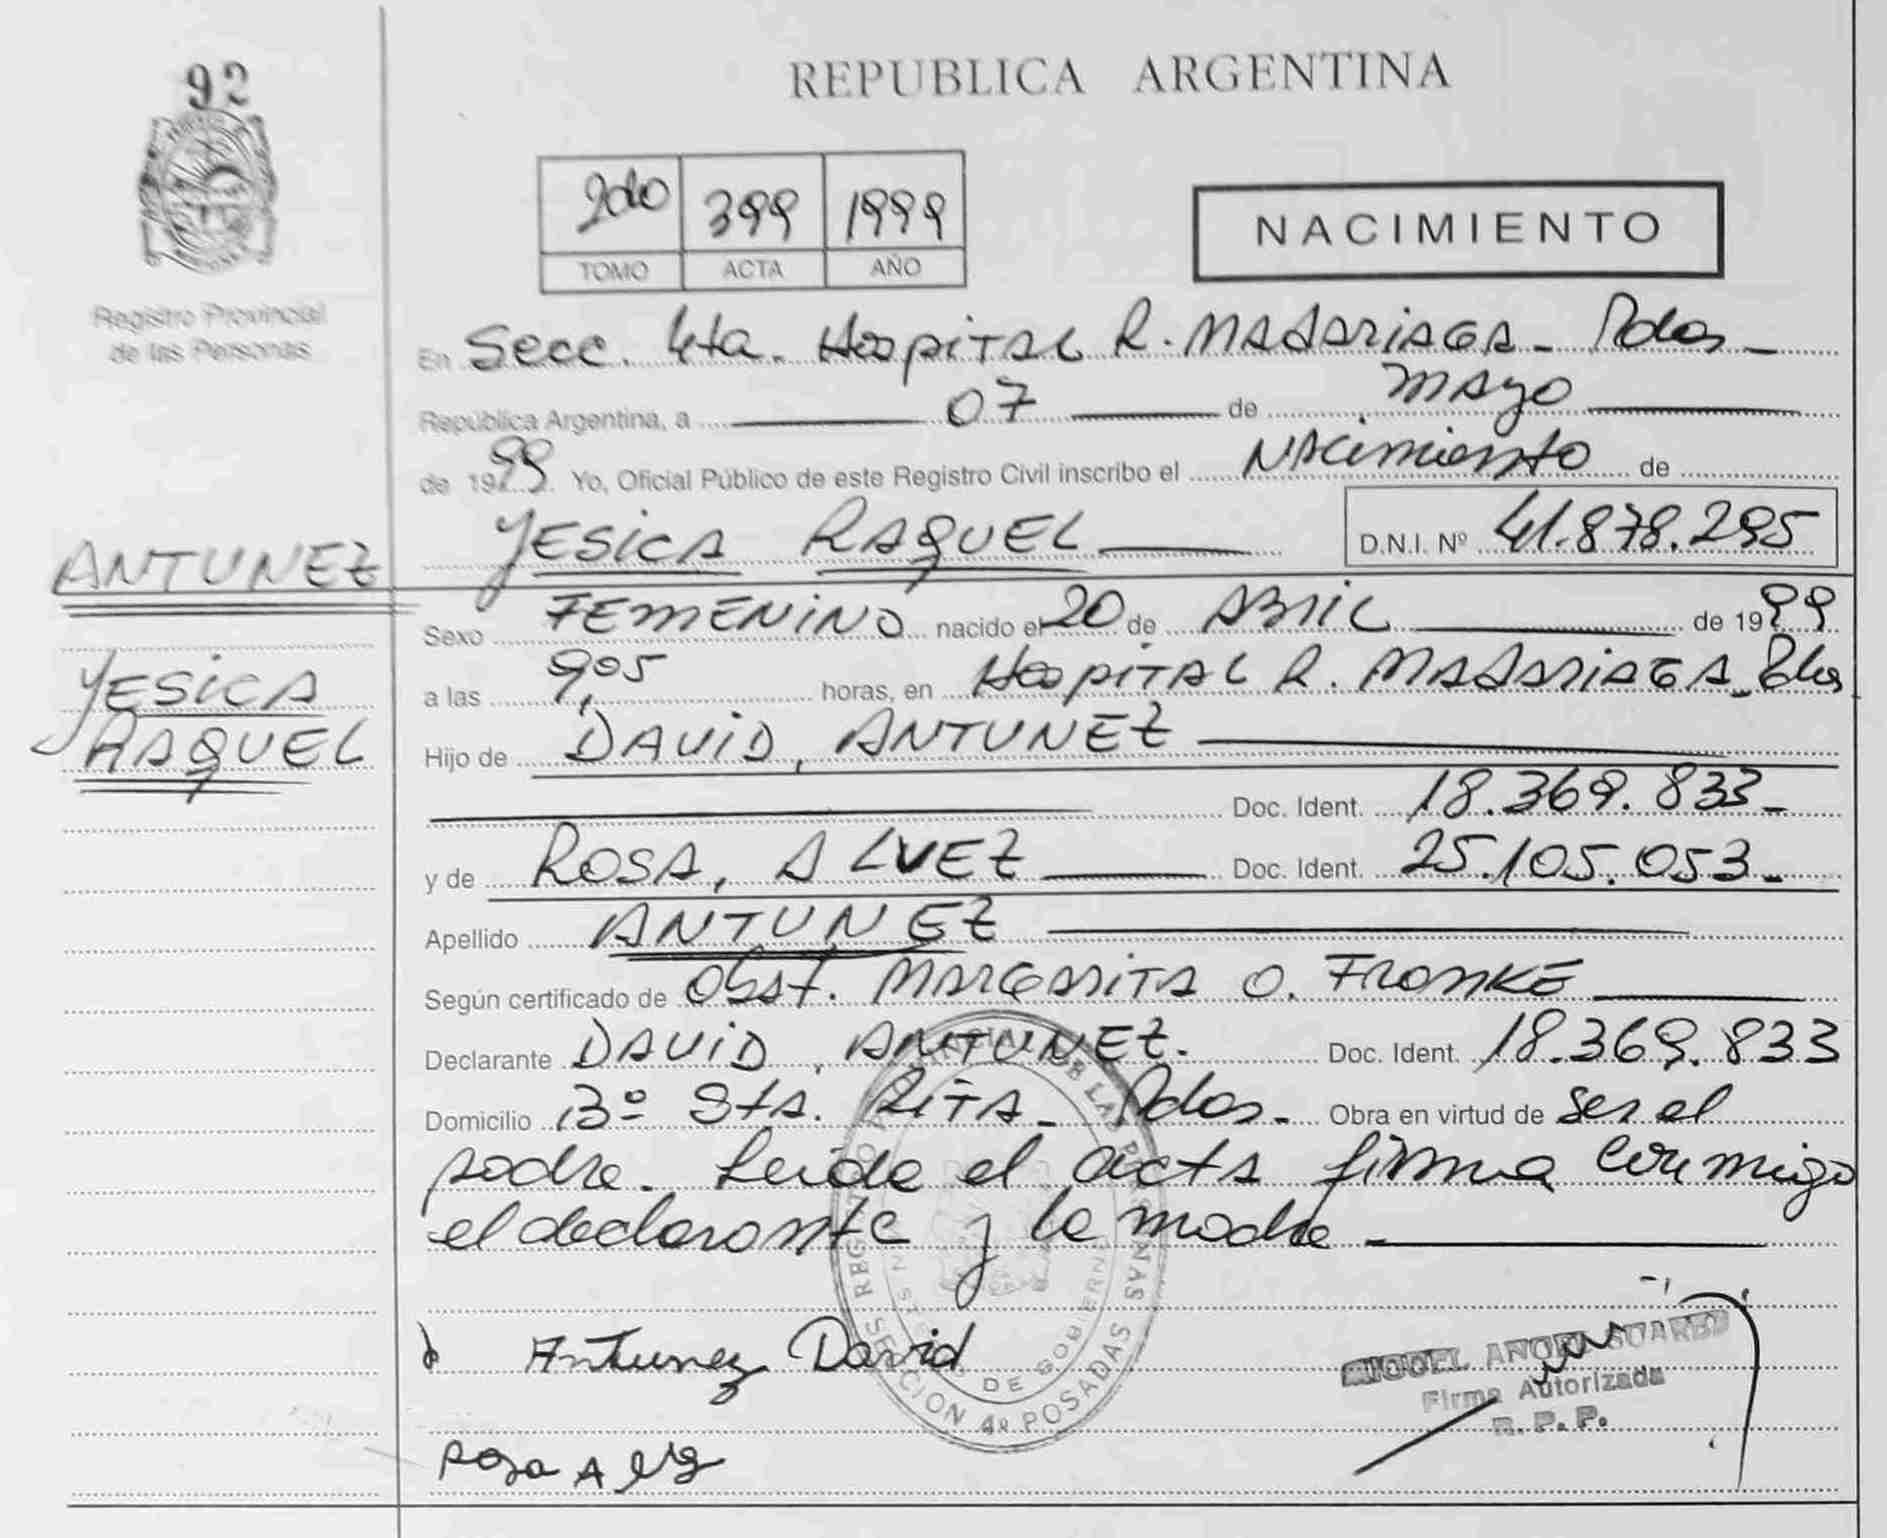 92
REPUBLICA ARGENTINA
2do 399 1999
TOMO ACTA AÑO
NACIMIENTO
Registro Provincial
de las Personas
En Secc. 4ta. Hospital R. MADARIAGA - Pdas -
República Argentina, a 07 de MAYO
de 1999. Yo, Oficial Público de este Registro Civil inscribo el NACimiento de
YESICA RAQUEL D.N.I. Nº 41.878.295
ANTUNEZ
Sexo FEMENINO nacido el 20 de ABRIL de 1999
YESICA
a las 9,05 horas, en Hospital R. MADARIAGA - Pdas
RAQUEL
Hijo de DAVID, ANTUNEZ
Doc. Ident. 18.369.833 -
y de ROSA, ALVEZ Doc. Ident. 25.105.053 -
Apellido ANTUNEZ
Según certificado de Obst. MARGARITA O. FRONKE
Declarante DAVID, ANTUNEZ. Doc. Ident. 18.369.833
Domicilio Bº Sta. RITA - Pdas - Obra en virtud de ser el
padre. Leida el acta firma conmigo
el declarante y la madre -
REGISTRO PROVINCIAL DE LAS PERSONAS
MINISTERIO DE GOBIERNO
SECCION 4a POSADAS
Antunez David
MIGUEL ANGEL SUAREZ
Firma Autorizada
R. P. P.
Rosa Alvez